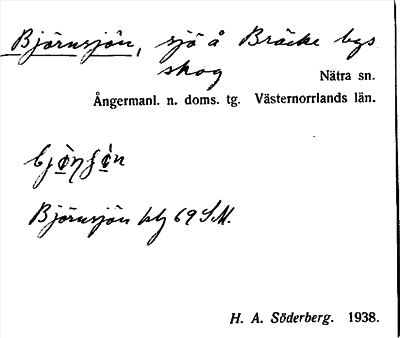 Björnsjön, sjö å Bräcke bys
skog
Nätra sn.
Ångermanl. n. doms. tg. Västernorrlands län.
Björnsjön blg 69 S.M.
H. A. Söderberg. 1938.